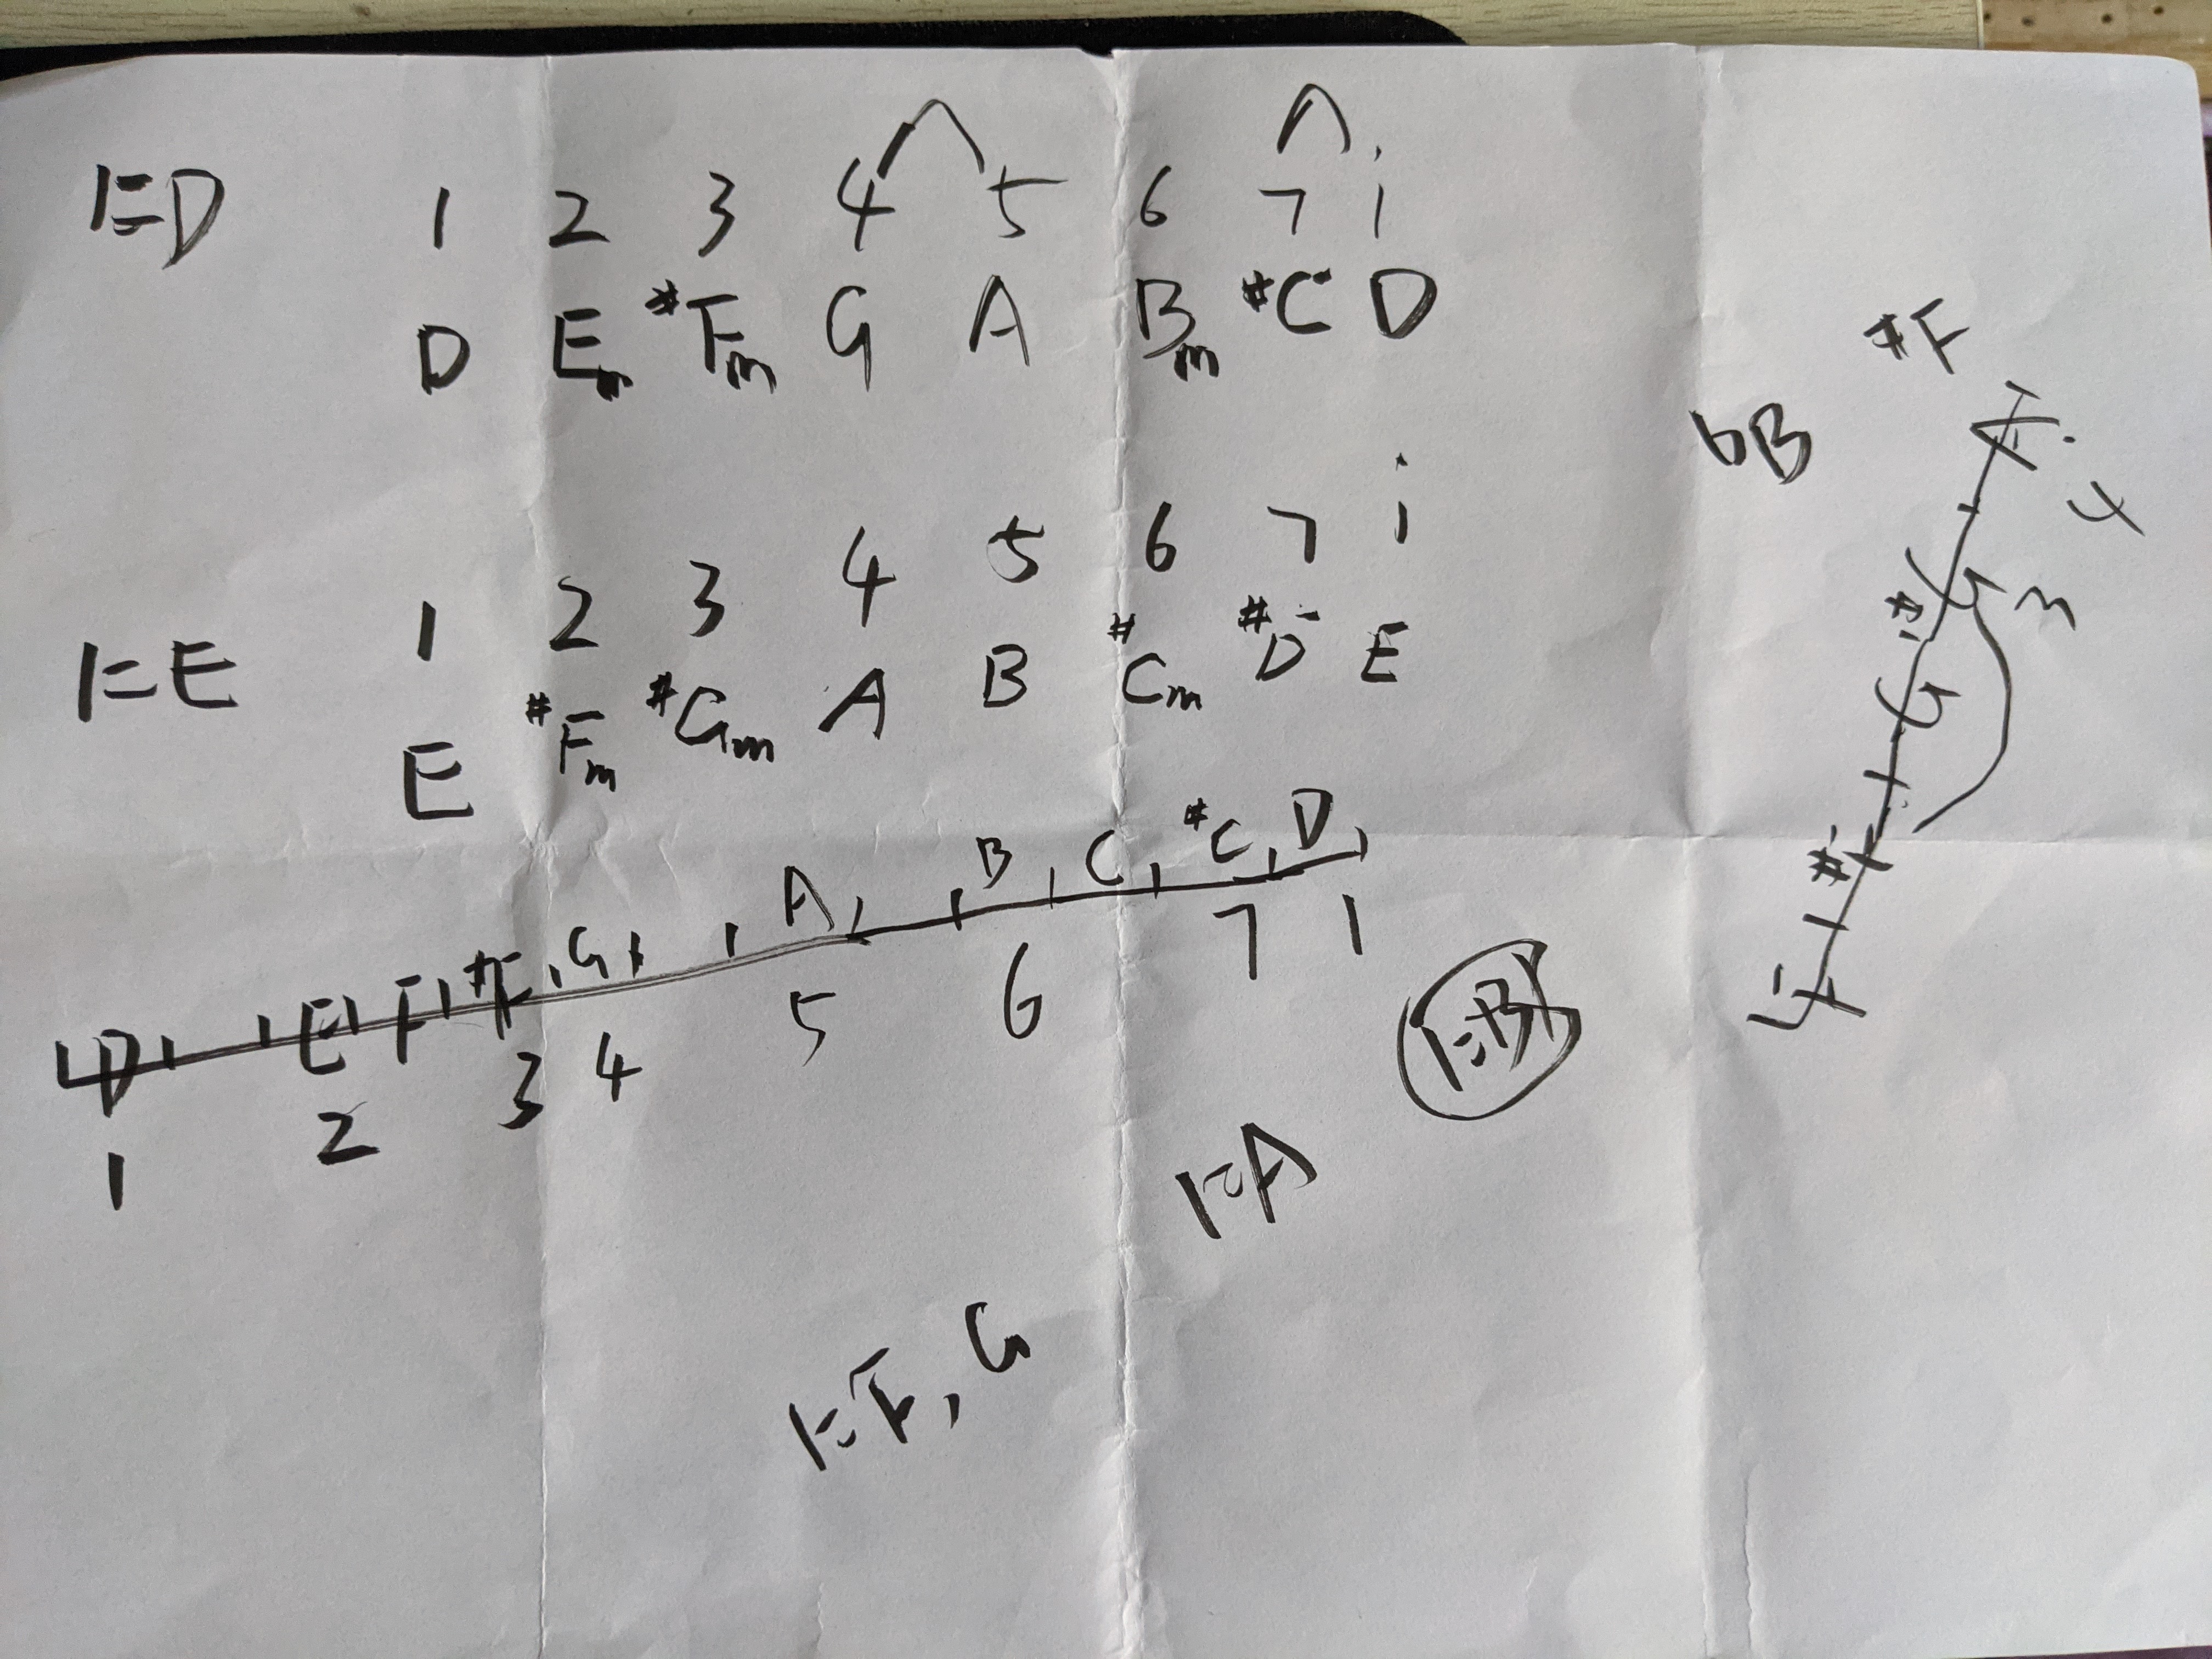 1=D 1 2 3 4 5 6 7 i
D Em #Fm G A Bm #C D
1=E 1 2 3 4 5 6 7 i
E #Fm #Gm A B #Cm #D E
D E F #F G A B C #C D
1 2 3 4 5 6 7 1
1=B
1=A
1=F, G
#F
bB
4
3